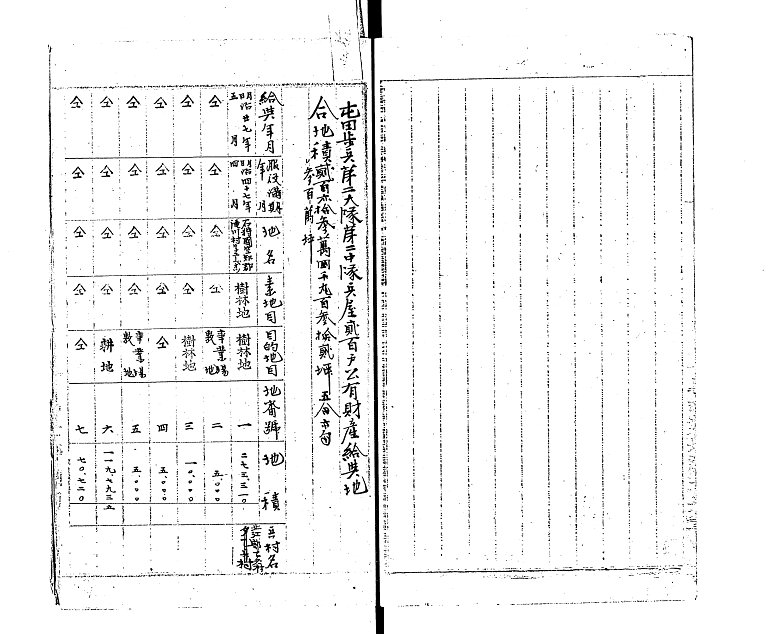 屯田歩兵第二大隊第二中隊兵屋貮百戸公有財産給與地
合地積貮百六拾参萬四千九百参拾貮坪五合
参百萬坪
給與年月 服役満期年月 地名 素地目 目的地目 地番號 地積 兵村名
明治廿七年五月 明治四十七年四月 石狩國空知郡 樹林地 樹林地 一 二七三、三一〇
仝 仝 仝 仝 事業場敷地 二 五、〇〇〇
仝 仝 仝 仝 樹林地 三 一〇、〇〇〇
仝 仝 仝 仝 仝 四 五、〇〇〇
仝 仝 仝 仝 事業場敷地 五 五、〇〇〇
仝 仝 仝 仝 耕地 六 一一九、七九三五
仝 仝 仝 仝 仝 七 七〇、七二〇